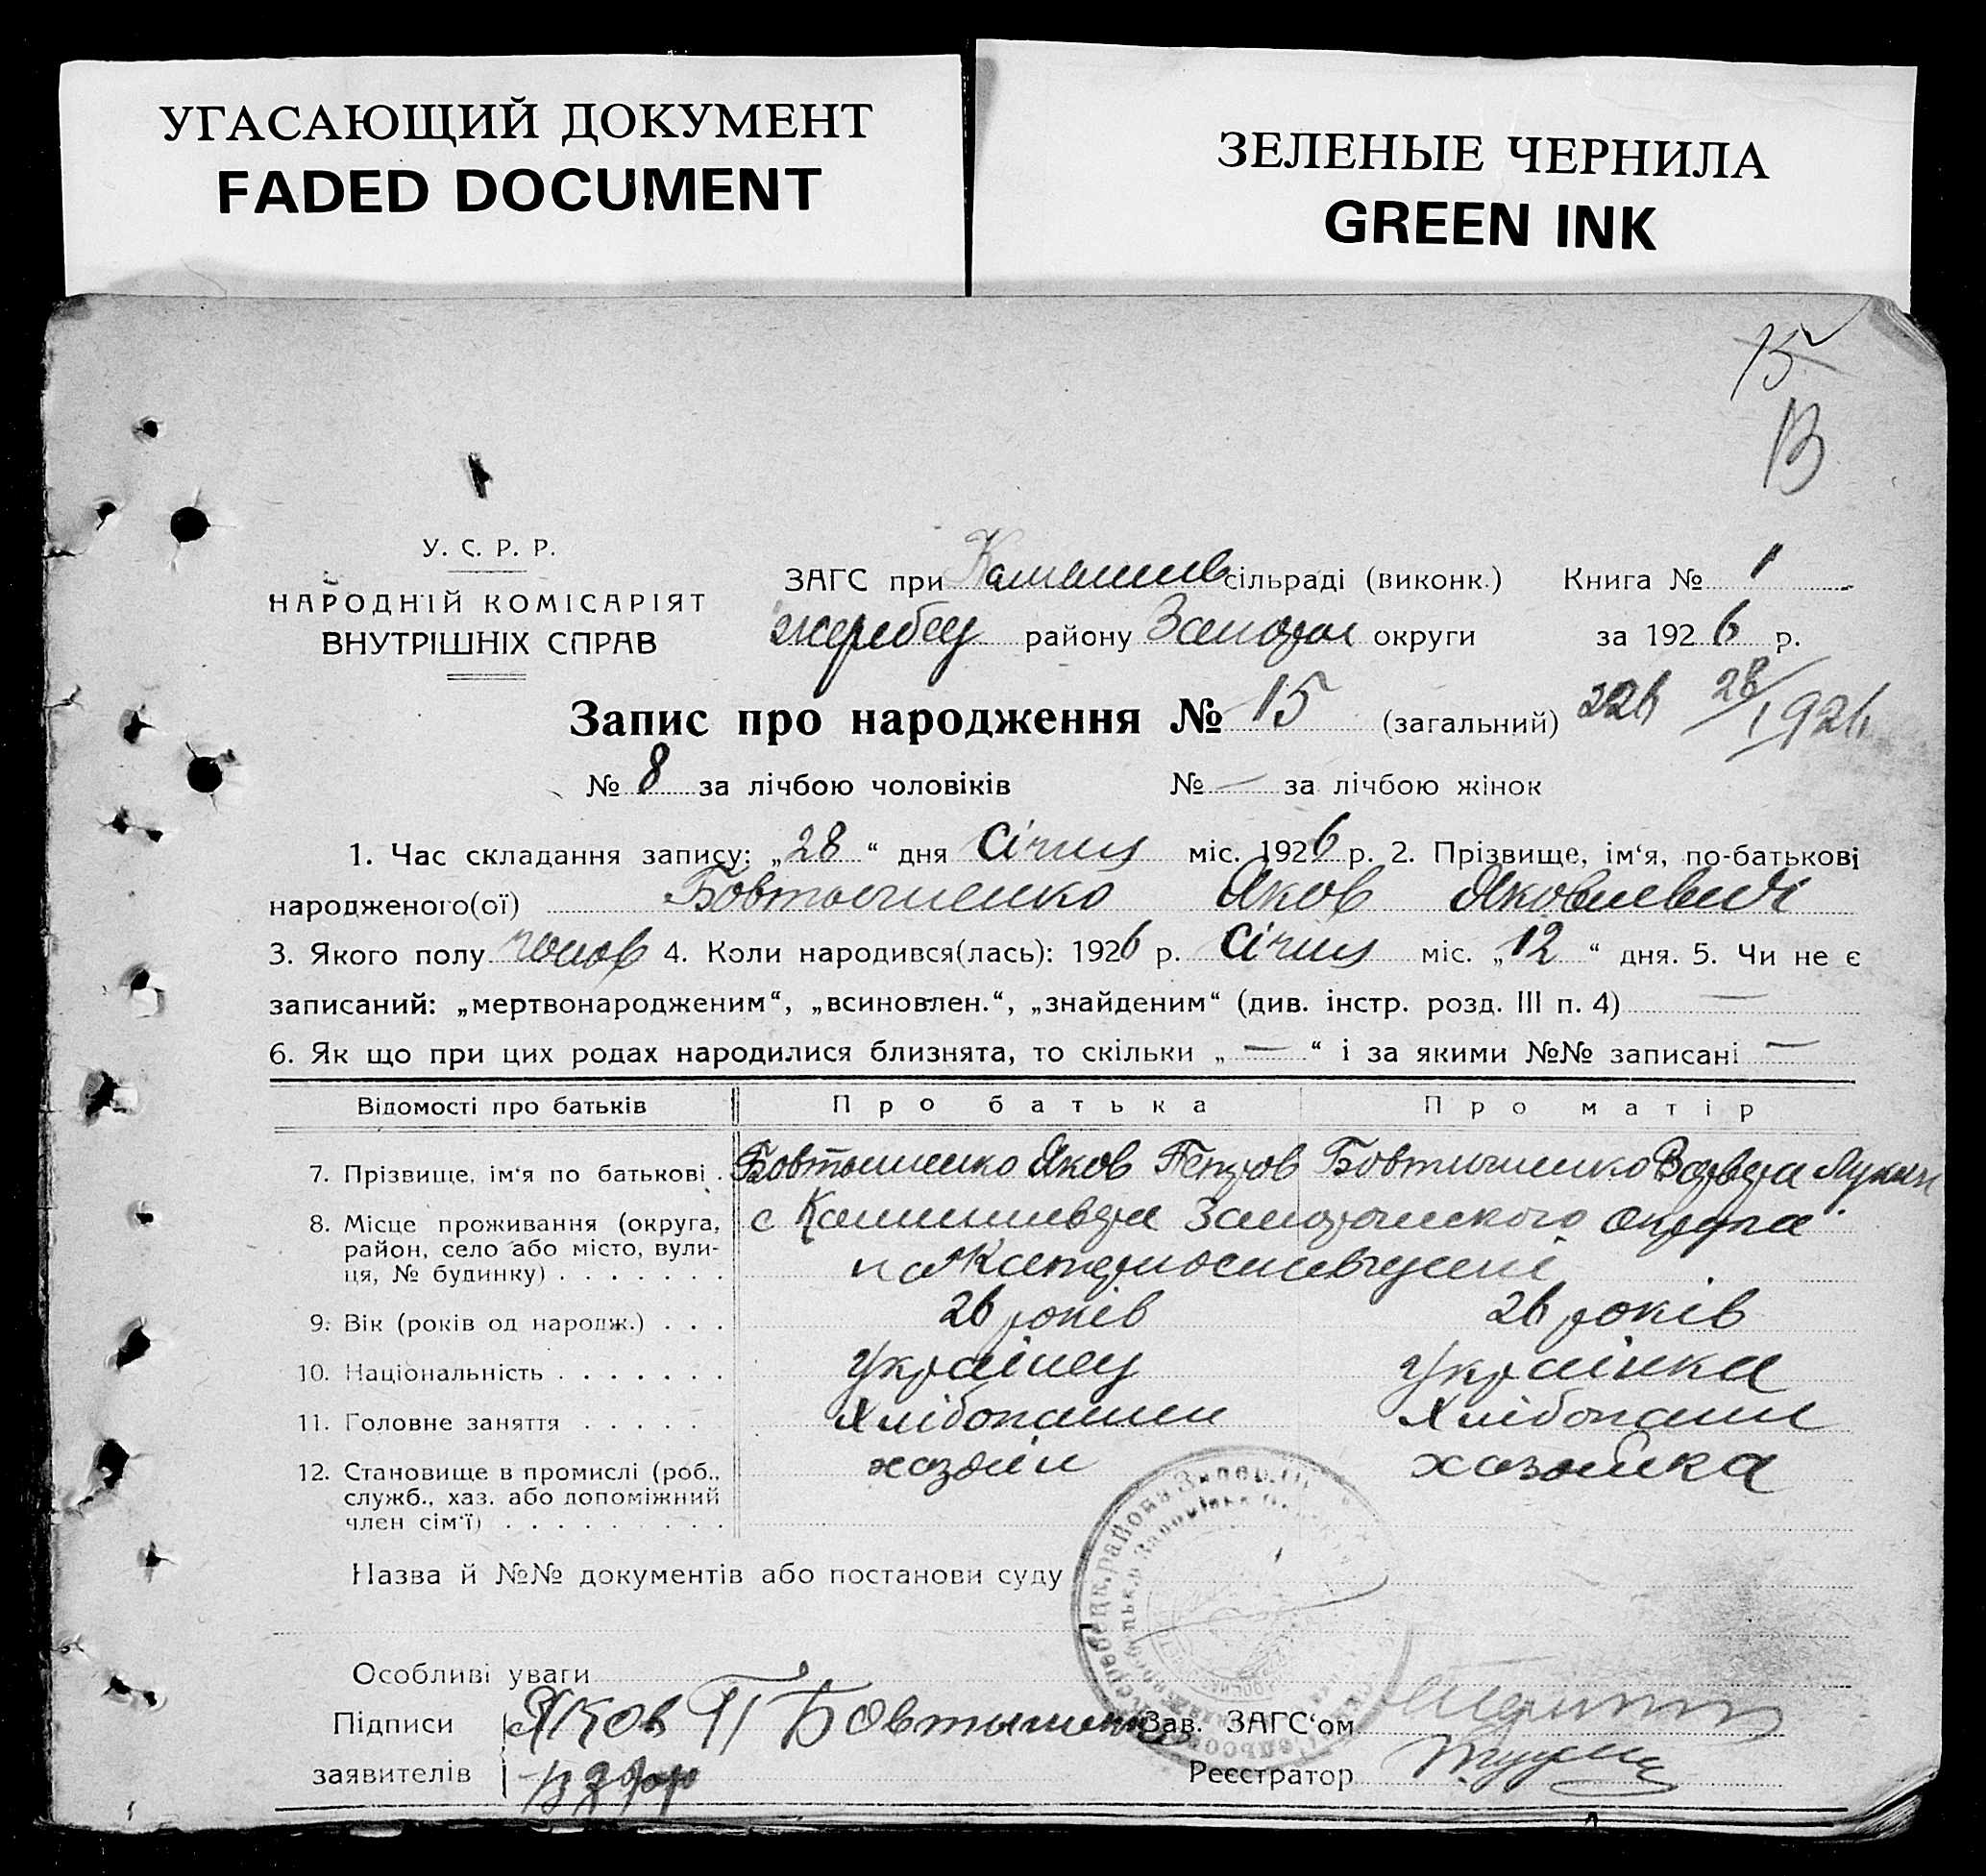 УГАСАЮЩИЙ ДОКУМЕНТ
FADED DOCUMENT
ЗЕЛЕНЫЕ ЧЕРНИЛА
GREEN INK
15
13
У. С. Р. Р.
НАРОДНІЙ КОМІСАРІЯТ
ВНУТРІШНІХ СПРАВ
ЗАГС при сільраді (виконк.) Книга № 1
жеребец району Запорож округи за 1926 р.
Запис про народження № 15 (загальний) 28/I 926
№ 8 за лічбою чоловіків № — за лічбою жінок
1. Час складання запису: „28“ дня Січня міс. 1926 р. 2. Прізвище, ім‘я, по-батькові
народженого(ої) Бовтышенко Яков Яковлевич
3. Якого полу чолов 4. Коли народився(лась): 1926 р. Січня міс. „12“ дня. 5. Чи не є
записаний: „мертвонародженим“, „всиновлен.“, „знайденим“ (див. інстр. розд. III п. 4) —
6. Як що при цих родах народилися близнята, то скільки „ — “ і за якими №№ записані —
Відомості про батьків Про батька Про матір
7. Прізвище, ім‘я по батькові . Бовтышенко Яков Петров Бовтышенко Варвара Лукин
8. Місце проживання (округа, район, село або місто, вулиця, № будинку) . . . . . . . с Запорожского округа
9. Вік (років од народж.) . . . 26 років 26 років
10. Національність . . . . . . . Українец Українка
11. Головне заняття . . . . . Хлібопашец Хлібопаш
12. Становище в промислі (роб., служб., хаз. або допоміжний член сім‘ї) . . . . . . . . . хозяїн хозяйка
Назва й №№ документів або постанови суду
Особливі уваги
Підписи Яков П Бовтышенко Зав. ЗАГС‘ом
заявителів Реєстратор